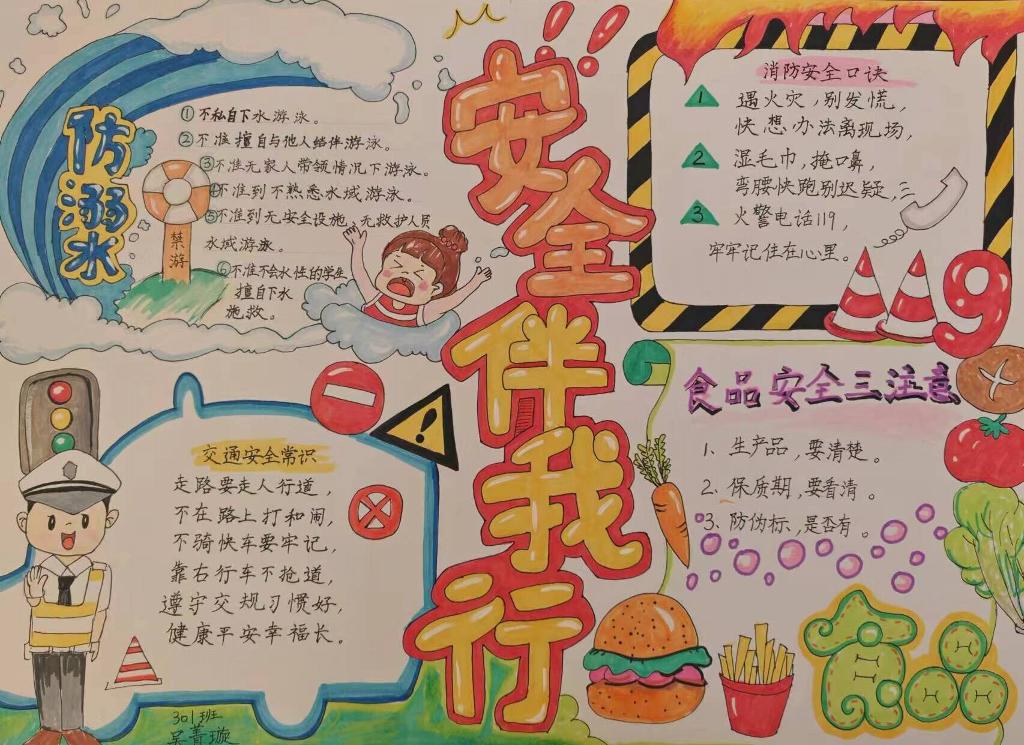 安全伴我行
防溺水
①不私自下水游泳。
②不准擅自与他人结伴游泳。
③不准无家人带领情况下游泳。
④不准到不熟悉水域游泳。
⑤不准到无安全设施,无救护人员
水域游泳。
⑥不准不会水性的学生
擅自下水
施救。
禁
游
消防安全口诀
1 遇火灾,别发慌,
快想办法离现场,
2 湿毛巾,掩口鼻,
弯腰快跑别迟疑,
3 火警电话119,
牢牢记住在心里。
119
交通安全常识
走路要走人行道,
不在路上打和闹,
不骑快车要牢记,
靠右行车不抢道,
遵守交规习惯好,
健康平安幸福长。
食品安全三注意
1、生产品,要清楚。
2、保质期,要看清。
3、防伪标,是否有。
食品
301班
吴菁璇